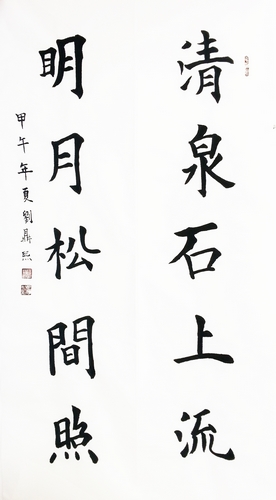 清泉石上流
明月松間照
甲午年夏劉鼎